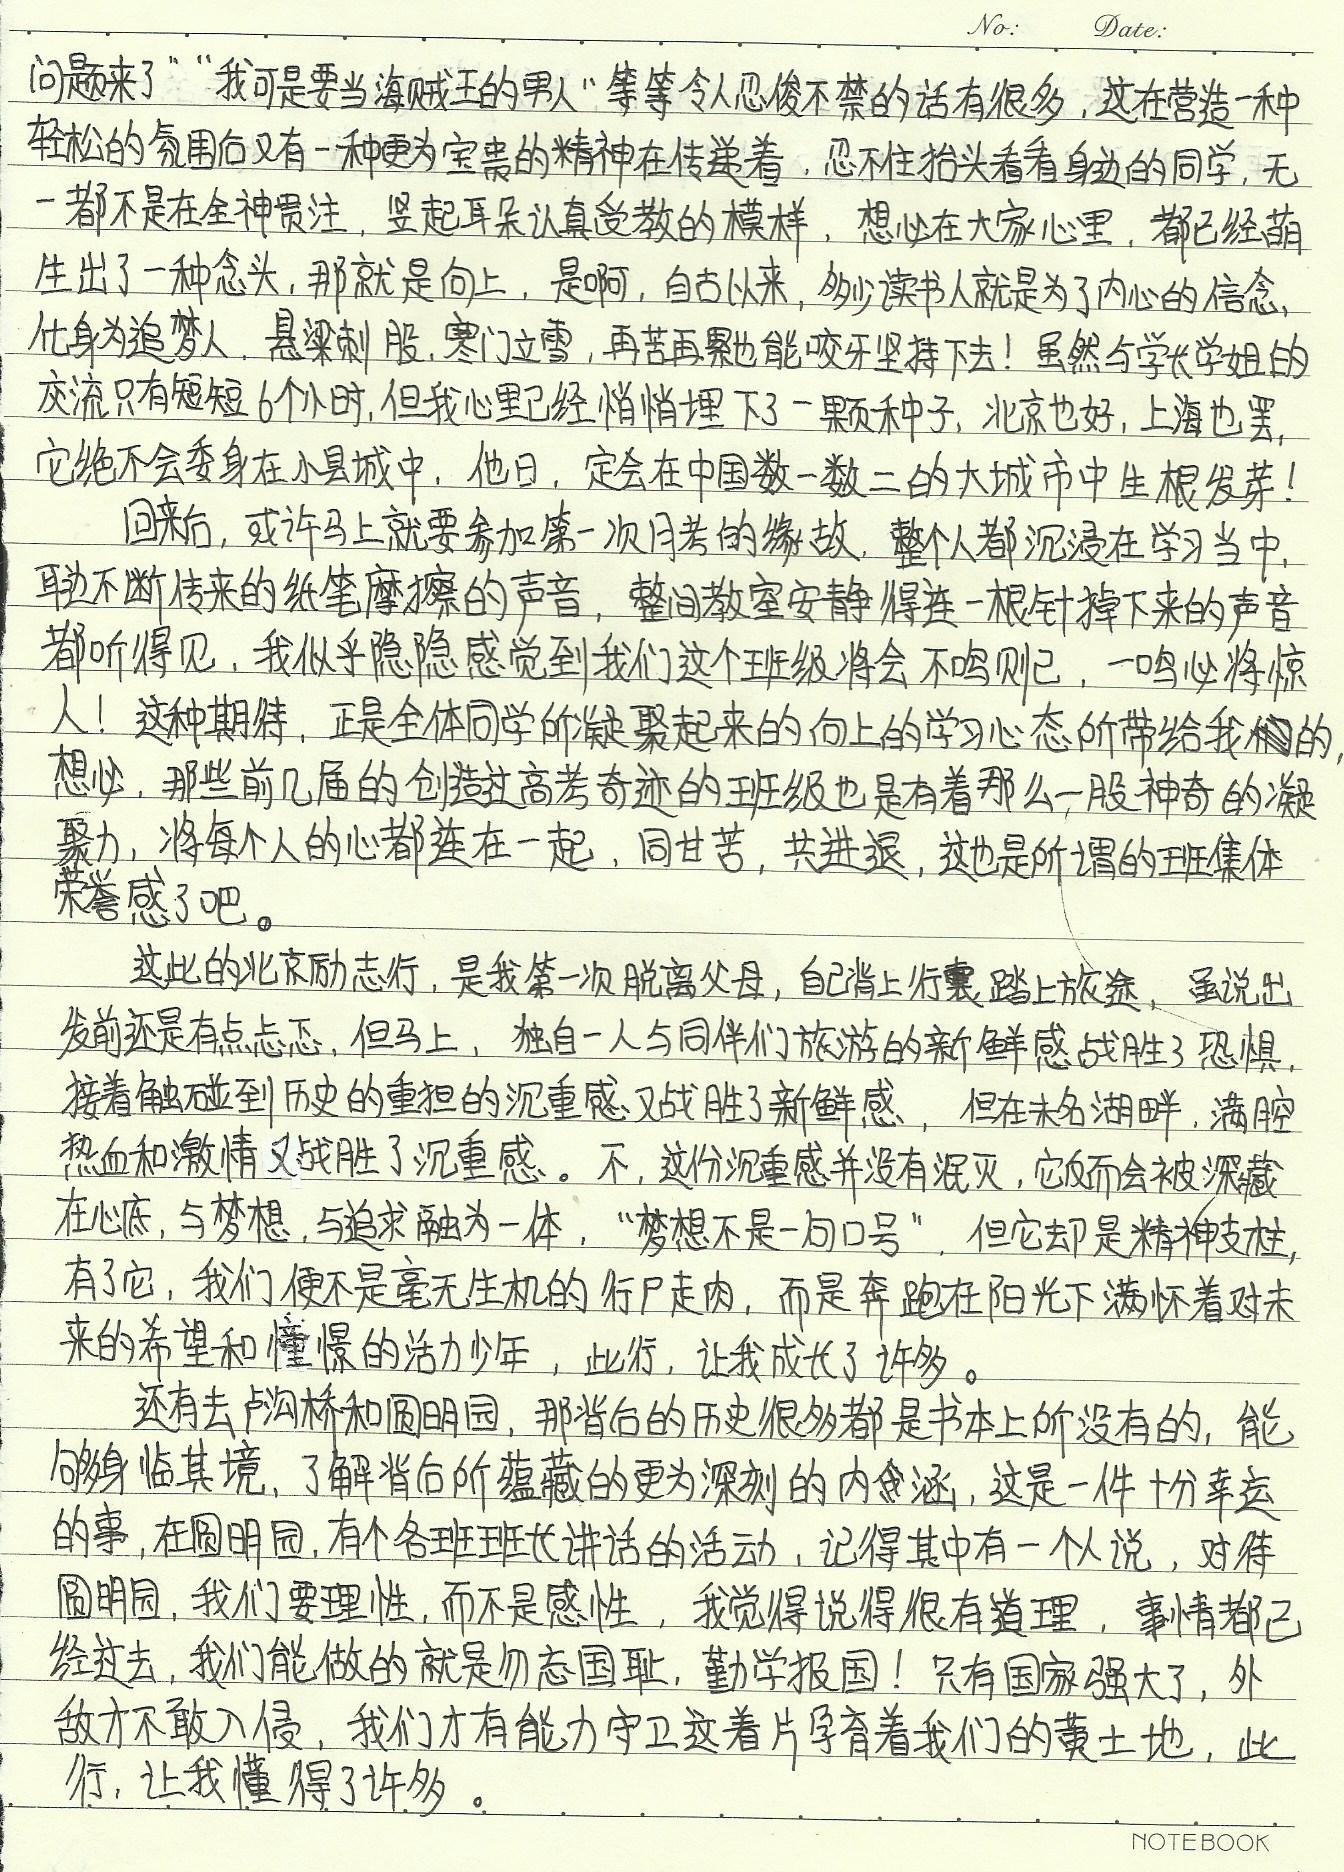 No:　Date:
问题来了”“我可是要当海贼王的男人”等等令人忍俊不禁的话有很多，这在营造一种
轻松的氛围后又有一种更为宝贵的精神在传递着，忍不住抬头看看身边的同学，无
一都不是在全神贯注，竖起耳朵认真受教的模样，想必在大家心里，都已经萌
生出了一种念头，那就是向上，是啊，自古以来，多少读书人就是为了内心的信念，
化身为追梦人，悬梁刺股，寒门立雪，再苦再累也能咬牙坚持下去！虽然与学长学姐的
交流只有短短6个小时，但我心里已经悄悄埋下了一颗种子，北京也好，上海也罢，
它绝不会委身在小县城中，他日，定会在中国数一数二的大城市中生根发芽！
回来后，或许马上就要参加第一次月考的缘故，整个人都沉浸在学习当中，
耳边不断传来的纸笔摩擦的声音，整间教室安静得连一根针掉下来的声音
都听得见，我似乎隐隐感觉到我们这个班级将会不鸣则已，一鸣必将惊
人！这种期待，正是全体同学所凝聚起来的向上的学习心态所带给我们的，
想必，那些前几届的创造过高考奇迹的班级也是有着那么一股神奇的凝
聚力，将每个人的心都连在一起，同甘苦，共进退，这也是所谓的班集体
荣誉感了吧。
这此的北京励志行，是我第一次脱离父母，自己背上行囊踏上旅途，虽说出
发前还是有点忐忑，但马上，独自一人与同伴们旅游的新鲜感战胜了恐惧，
接着触碰到历史的重担的沉重感又战胜了新鲜感，但在未名湖畔，满腔
热血和激情又战胜了沉重感。不，这份沉重感并没有泯灭，它反而会被深藏
在心底，与梦想，与追求融为一体，“梦想不是一句口号”，但它却是精神支柱，
有了它，我们便不是毫无生机的行尸走肉，而是奔跑在阳光下满怀着对未
来的希望和憧憬的活力少年，此行，让我成长了许多。
还有去卢沟桥和圆明园，那背后的历史很多都是书本上所没有的，能
够身临其境，了解背后所蕴藏的更为深刻的内涵，这是一件十分幸运
的事，在圆明园，有个各班班长讲话的活动，记得其中有一个人说，对待
圆明园，我们要理性，而不是感性，我觉得说得很有道理，事情都已
经过去，我们能做的就是勿忘国耻，勤学报国！只有国家强大了，外
敌才不敢入侵，我们才有能力守卫这着片孕育着我们的黄土地，此
行，让我懂得了许多。
NOTEBOOK